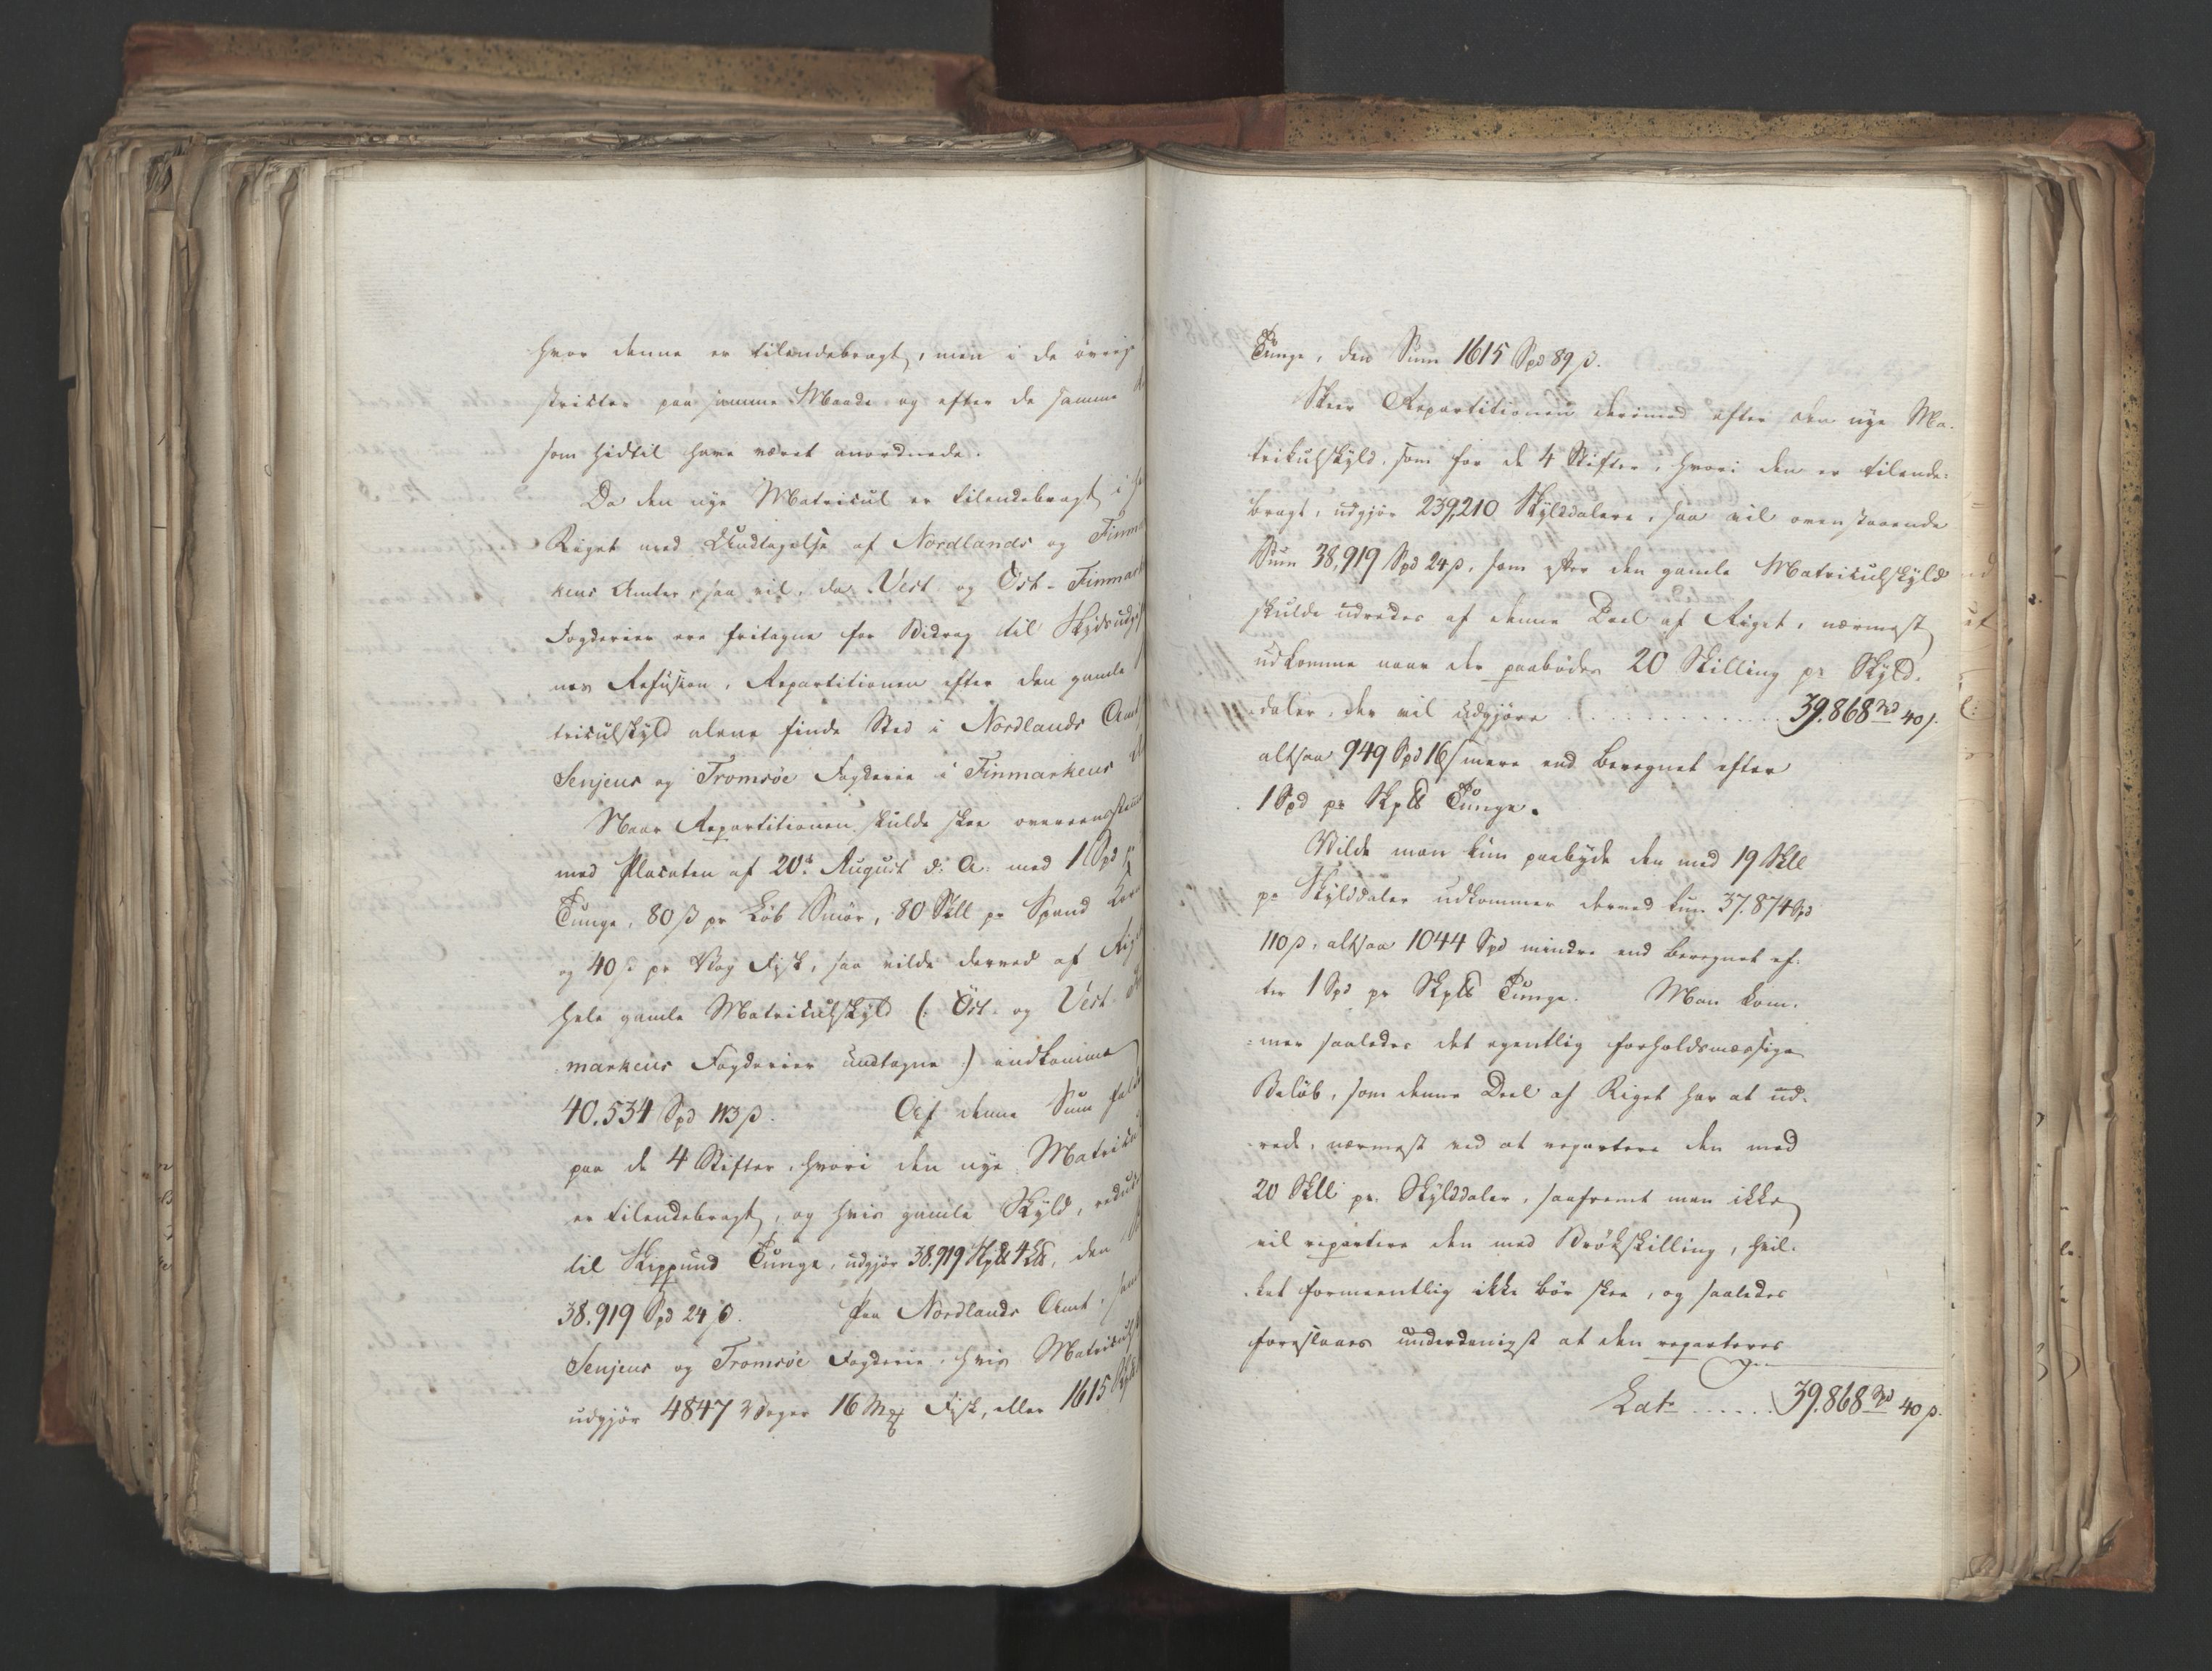 hvor denne er tilendebragt, men i de øvrige
strikter paa samme Maade og efter de samme
som hidtil have været anordnede.
Da den nye Matricul er tilendebragt i
Riget med Undtagelse af Nordlands og Finm
kens Amter, saa vil, da Vest og Öst-Finmark
Fogderier ere fritagne for Bidrag til Skydsudgif
nes Refusion, Repartitionen efter den gamle
triculskyld alene finde Sted i Nordlands Amt
Senjens og Tromsöe Fogderie i Finmarkens
Naar Repartitionen skulde skee overeensstem
med Placaten af 20de August d: A: med 1 Spd
Tunge, 80 β pr Løb Smör, 80 Skll pr Spand Korn
og 40 β pr Vog Fisk, saa vilde derved af Rig
hele gamle Matriculskyld (: Öst- og Vest-
markens Fogderier undtagne :) indkomme
40.534 Spd 113 β. Af denne Sum fald
paa de 4 Stifter, hvori den nye Matricul
er tilendebragt, og hvis gamle Skyld, redu
til Skippund Tunge, udgjör 38.919 Skp℔ 4 L℔, den
38.919 Spd 24 β. Paa Nordlands Amt, samt
Senjens og Tromsöe Fogderie, hvis Matriculsk
udgjör 4847 Voger 16 Mrk Fisk, eller 1615 Skp℔
Tunge, den Sum 1615 Spd 89 β.
Skeer Repartitionen derimod efter den nye Ma-
trikulskyld, som for de 4 Stifter, hvori den er tilende-
bragt, udgjör 239,210 Skylddalere, saa vil ovenstaaende
Sum 38,919 Spd 24 β, som efter den gamle Matriculskyld
skulde udredes af denne Deel af Riget, nærmest
udkomme naar der paabydes 20 Skilling pr Skyld-
daler, der vil udgjöre . . . . . . . . . . . . 39.868 Spd 40 β.
altsaa 949 Spd 16 β mere end beregnet efter
1 Spd pr Skp℔ Tunge.
Vilde man kun paabyde den med 19 Skll
pr Skylddaler udkommer derved kun 37.874 Spd
110 β, altsaa 1044 Spd mindre end beregnet ef-
ter 1 Spd pr Skp℔ Tunge. Man kom-
mer saaledes det egentlig forholdsmæssige
Belöb, som denne Deel af Riget har at ud-
rede, nærmest ved at repartere den med
20 Skll pr. Skylddaler, saafremt man ikke
vil repartere den med Brökskilling, hvil-
ket formeentlig ikke bör skee, og saaledes
foreslaaes underdanigst at den reparteres
Lat. . . . . . 39.868 Spd 40 β.